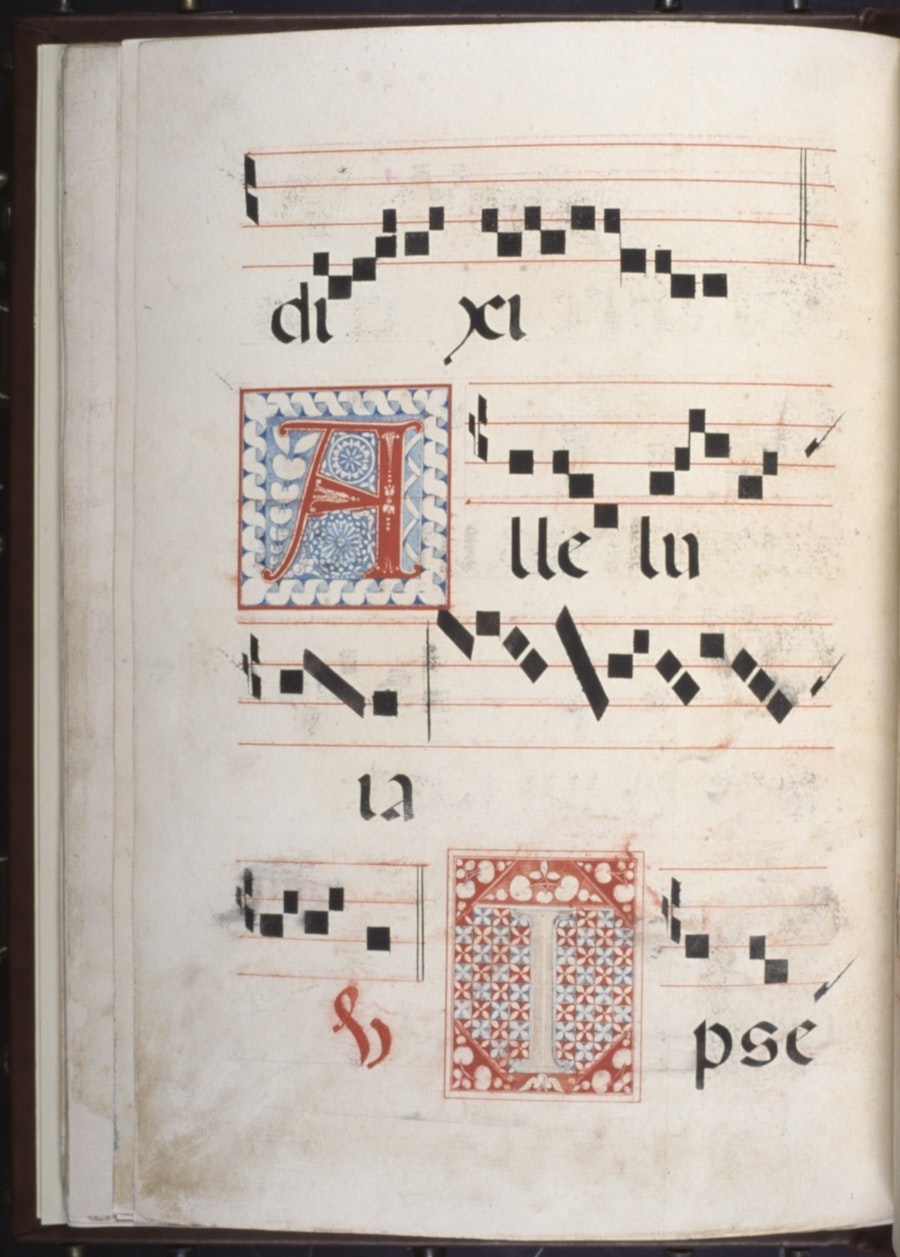 di xi
A lle lu
ia
℣ I pse